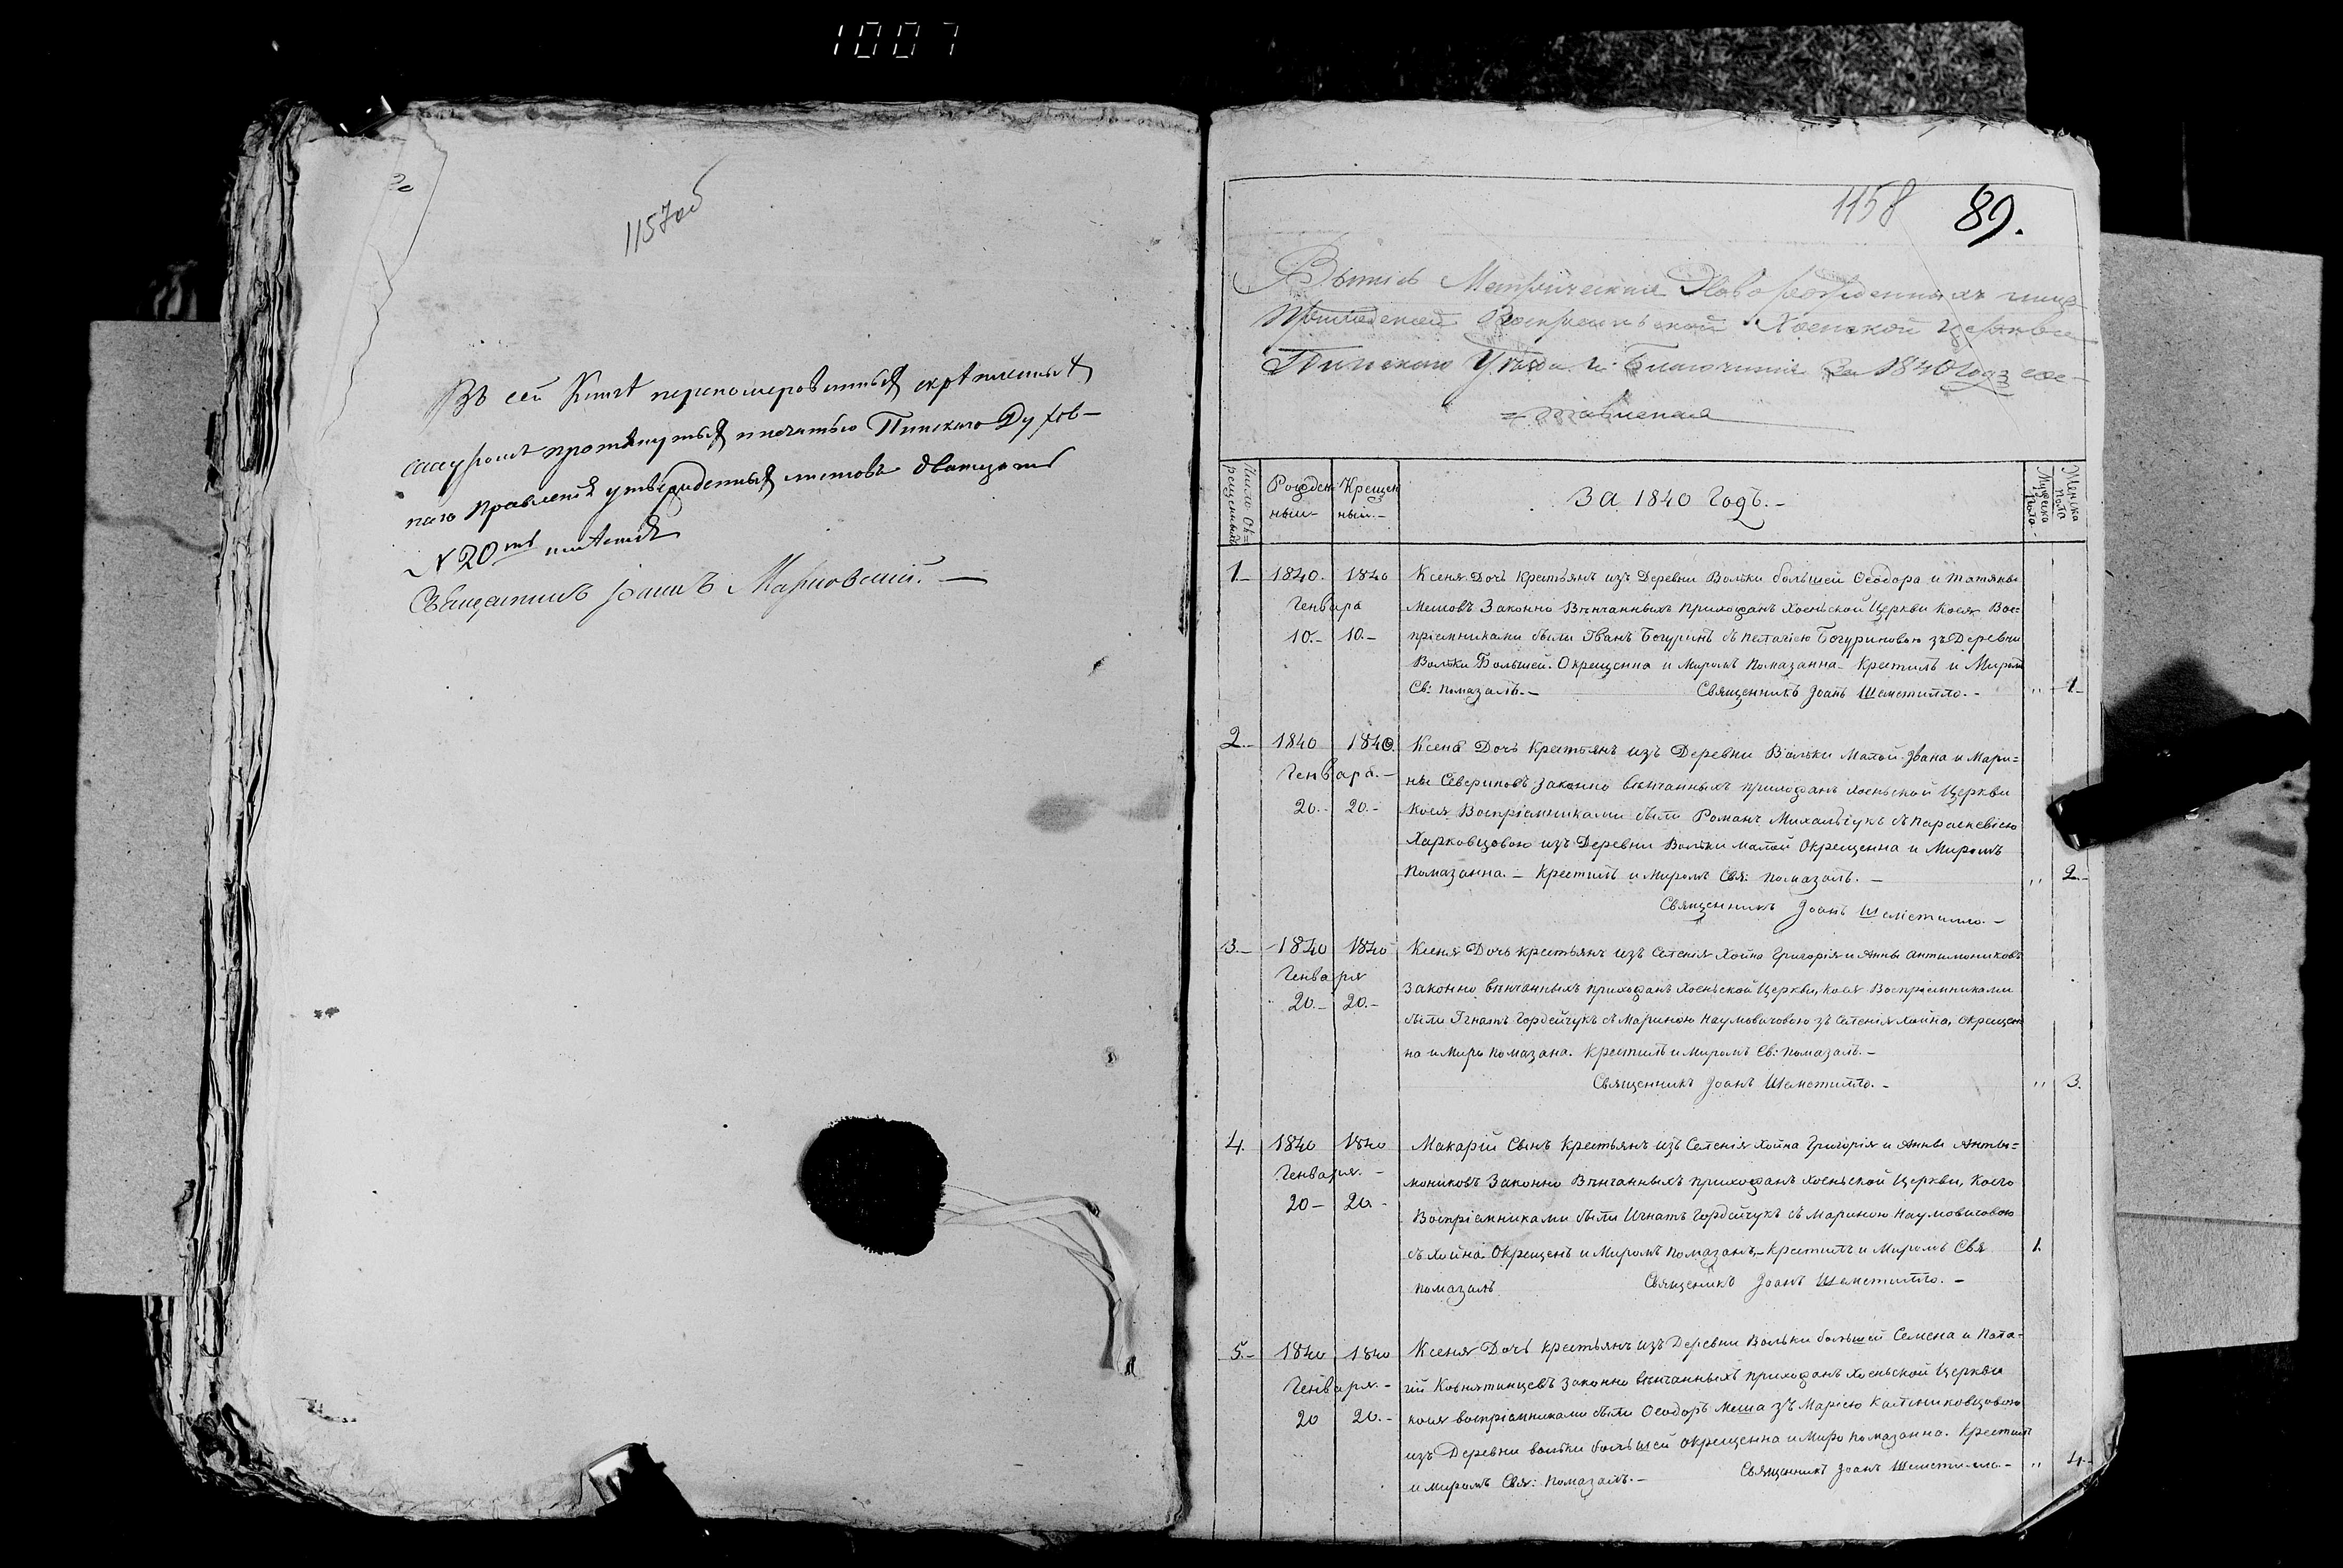 1007
1157об
Въ сей Книгѣ перенумерованныхъ скрѣпленныхъ
шнуромъ протянутыхъ и печатью Пинскаго Духов-
наго Правленія утвержденныхъ листовъ двадцать
№ 20ть имѣется
Священникъ Іоаннъ
1158 89.
Метрическая Новорожденныхъ
Хоенской Церкви
Пинскаго Уѣзда и Благочинія за 1840 годъ сос-
=тавленная
Число Ок=рещенныхъ
Рожден-ный- Крещен-ный.-
За 1840 Годъ.-
Мужеска Пола.
Женска Пола
1- 1840. 1840 Ксеня Дочь Крестьянъ изъ Деревни Вольки большей Ѳеодора и Татяны
Генваря Мешовъ Законно Вѣнчанныхъ Прихожанъ Хоеньской Церкви Коея Вос=
10.- 10.- пріемниками были Іванъ Богуринъ съ Пелагіею Богуриновою зъ Деревни
Вольки Большей. Окрещенна и Миромъ Помазанна- Крестилъ и Миромъ
Св: помазалъ.- Священникъ Іоанъ Шеметилло.- " 1-
2.- 1840 1840. Ксеня Дочь Крестьянъ изъ Деревни Вольки Малой Івана и Мари=
Генвара.- ны Севериновъ Законно вѣнчанныхъ прихожанъ хоеньской Церкви
20.- 20.- Коея Воспріемниками были Романъ Михальчукъ съ Параскевіею
Харковцовою изъ Деревни Вольки малой Окрещенна и Миромъ
Помазанна.- Крестилъ и Миромъ Свя: помазалъ.- " 2.-
Священникъ Іоанъ Шеметилло.-
3.- 1840 1840 Ксеня Дочь крестьянъ изъ Селенія Хойна Григорія и Анны Антимониковъ
Генваря Законно вѣнчанныхъ прихожанъ Хоеньской Церкви, коея Воспріемниками
20.- 20.- были Ігнатъ Гордейчукъ съ Мариною Наумовичовою зъ Селенія Хойна, окрещен
на и Миро помазана. Крестилъ и Миромъ Св: помазалъ.-
Священникъ Іоанъ Шеметилло.- " 3.
4. 1840 1840 Макарій Сынъ Крестьянъ изъ Селенія Хойна Григорія и Анны Анти=
Генваря.- мониковъ Законно Вѣнчанныхъ прихожанъ хоеньской Церкви, Коего
20- 20.- Воспріемниками были Игнатъ Гордейчукъ съ Мариною Наумовичовою
съ Хойна Окрещенъ и Миромъ помазанъ,- Крестилъ и Миромъ Свя 1.
помазалъ Священикъ Іоанъ Шеметилло.-
5.- 1840 1840 Ксеня Дочь крестьянъ изъ Деревни Вольки большей Семена и Пела-
Генваря.- гіи Ковнятинцевъ Законно вѣнчанныхъ прихожанъ хоеньской Церкви
20 20.- коея воспріемниками были Ѳеодоръ Меша зъ Маріею
изъ Деревни вольки большей Окрещенна и Миро помазанна. Крестилъ
и Миромъ Свя: помазалъ.- Священникъ Іоанъ Шеметилло- " 4-